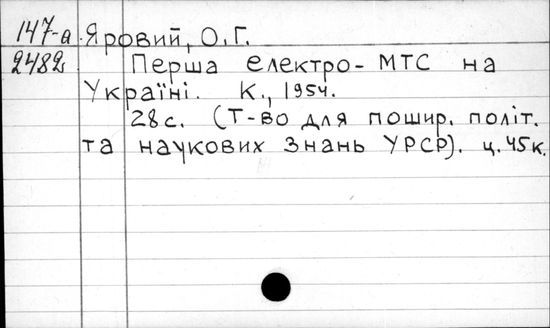 147-а Яровий, О.Г.
2482 Перша електро-МТС на
Україні. К., 1954.
28 с. (Т-во для пошир. політ.
та наукових знань УРСР). ц. 45 к.